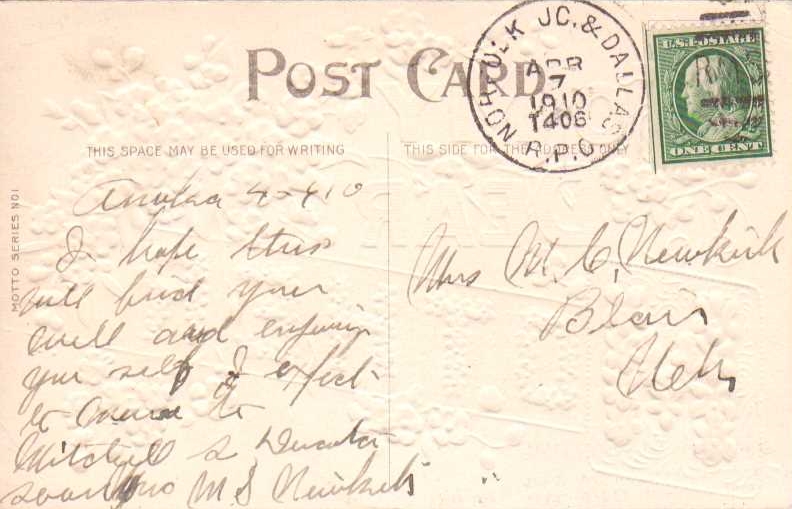 POST CARD
NORFOLK JC. & DALLAS
APR
7
1910
T406
R.P.O.
U.S. POSTAGE
ONE CENT
THIS SPACE MAY BE USED FOR WRITING
THIS SIDE FOR THE ADDRESS ONLY
MOTTO SERIES NO1
4-7/10
I hope this
will find your
well and enjoying
your self I expect
to move to
Mitchell S Dacota
soon M S Newkirk
Mrs M. C. Newkirk
Blair
Neb